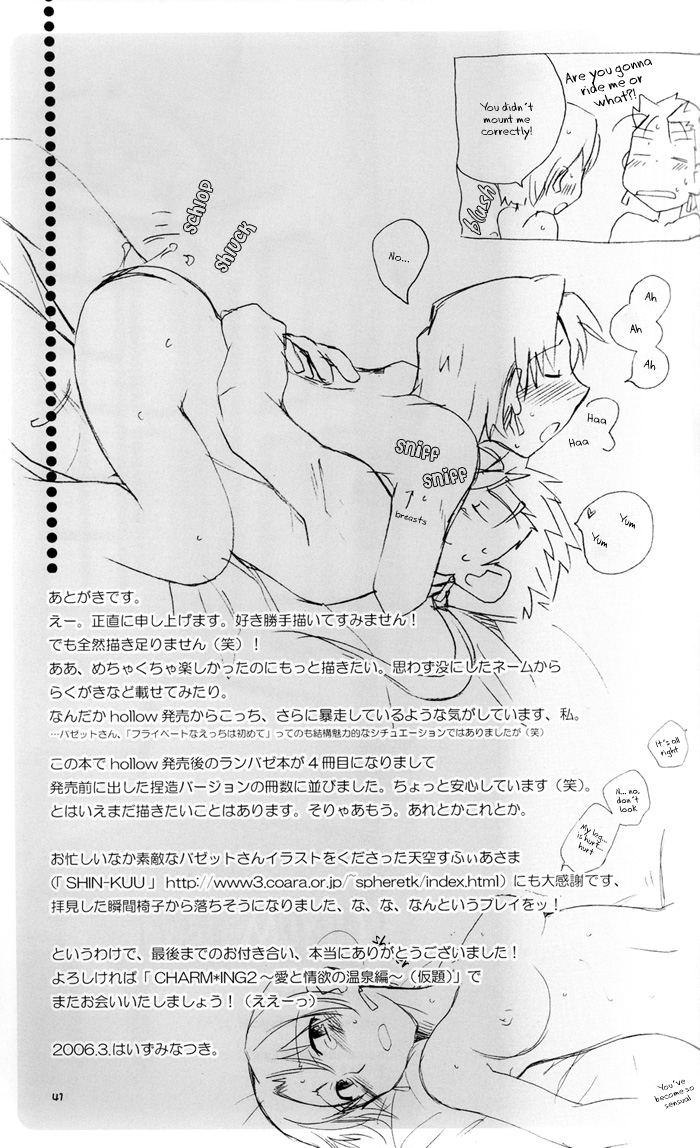 Are you gonna
ride me or
what?!
You didn't
mount me
correctly!
blush
schlop
shluck
No...
Ah
Ah
Ah
Haa
Haa
sniff
sniff
breasts
Yum
Yum
あとがきです。
えー。正直に申し上げます。好き勝手描いてすみません！
でも全然描き足りません（笑）！
ああ、めちゃくちゃ楽しかったのにもっと描きたい。思わず没にしたネームから
らくがきなど載せてみたり。
なんだか hollow 発売からこっち、さらに暴走しているような気がしています、私。
…バゼットさん、「プライベートなえっちは初めて」ってのも結構魅力的なシチュエーションではありましたが（笑）
この本で hollow 発売後のランバゼ本が 4 冊目になりまして
発売前に出した捏造バージョンの冊数に並びました。ちょっと安心しています（笑）。
とはいえまだ描きたいことはあります。そりゃあもう。あれとかこれとか。
お忙しいなか素敵なバゼットさんイラストをくださった天空すふぃあさま
（「SHIN-KUU」 http://www3.coara.or.jp/~spheretk/index.html）にも大感謝です、
拝見した瞬間椅子から落ちそうになりました、な、な、なんというプレイをッ！
というわけで、最後までのお付き合い、本当にありがとうございました！
よろしければ「CHARM*ING2～愛と情欲の温泉編～（仮題）」で
またお会いいたしましょう！（ええーっ）
2006.3.はいずみなつき。
It's all
right
N... no,
don't
look
My leg...
is hurt...
hurt
You've
become so
sensual
41